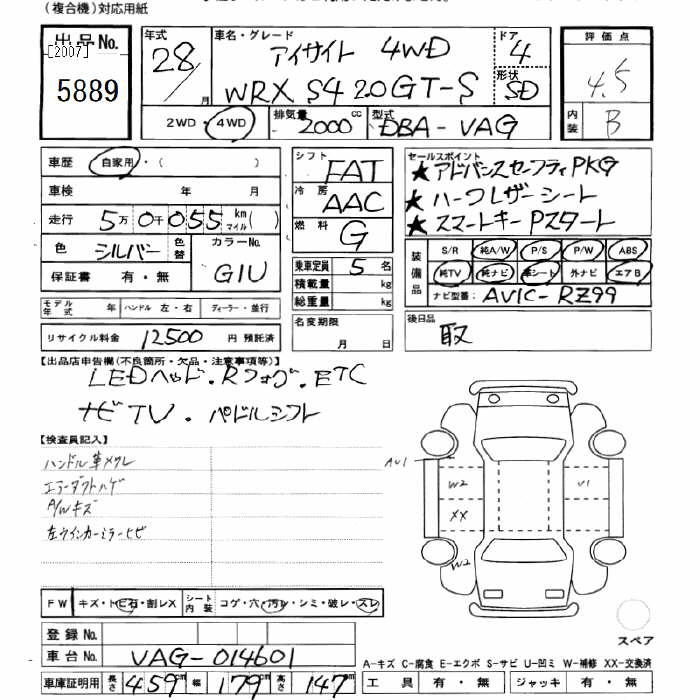 (複合機)対応用紙
出品No.
[2007]
5889
年式
28/月
車名・グレード
アイサイト 4WD
WRX S4 2.0GT-S
ドア
4
形状
SD
2WD・4WD
排気量
2000cc
型式
DBA-VAG
評価点
4.5
内装
B
車歴 自家用・( )
車検 年 月
走行 5万0千055km マイル( )
色 シルバー 色替
カラーNo.
G1U
保証書 有・無
シフト FAT
冷房 AAC
燃料 G
乗車定員 5名
積載量 kg
総重量 kg
セールスポイント
★アドバンスセーフティPKG
★ハーフレザーシート
★スマートキーPスタート
装備品
S/R 純A/W P/S P/W ABS
純TV 純ナビ 革シート 外ナビ エアB
ナビ型番: AVIC-RZ99
モデル年式 年 ハンドル 左・右 ディーラー・並行
リサイクル料金 12500円 預託済
名変期限
月 日
後日品
取
【出品店申告欄(不良箇所・欠品・注意事項等)】
LEDヘッド・Rフォグ・ETC
ナビTV・パドルシフト
【検査員記入】
ハンドル革メクレ
エラーダクトハゲ
A/Wキズ
左ウインカーミラーヒビ
AU1
W2
U1
XX
W2
FW キズ・トビ石・割レX
シート内装 コゲ・穴・汚レ・シミ・破レ・スレ
登録No.
車台No. VAG-014601
車庫証明用 長さ 459cm 幅 179cm 高さ 147cm
スペア
A-キズ C-腐食 E-エクボ S-サビ U-凹ミ W-補修 XX-交換済
工具 有・無 ジャッキ 有・無